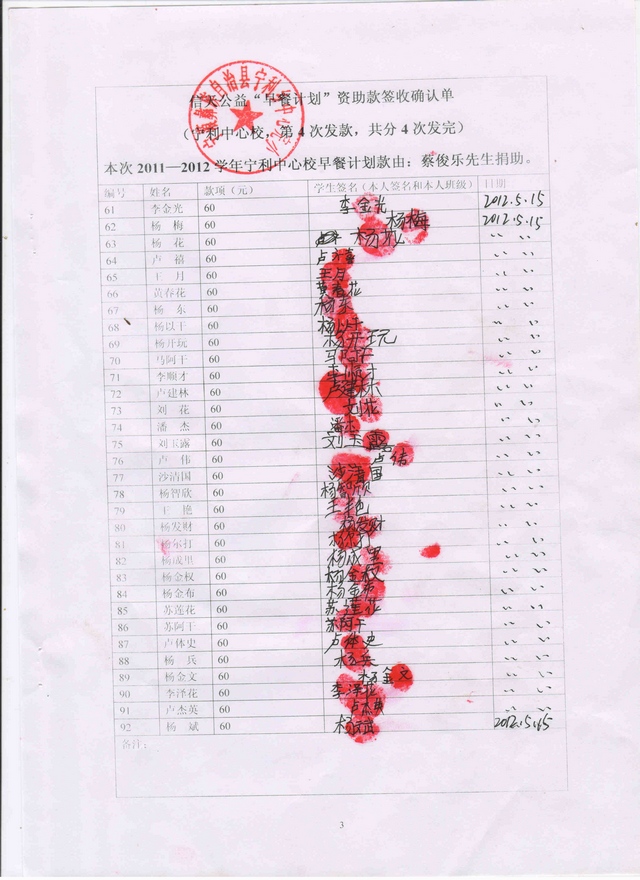 信天公益“早餐计划”资助款签收确认单
(宁利中心校，第4次发款，共分4次发完)
本次 2011—2012 学年宁利中心校早餐计划款由：蔡俊乐先生捐助。
编号 姓名 款项（元） 学生签名（本人签名和本人班级） 日期
61 李金光 60 李金光 2012.5.15
62 杨 梅 60 杨梅 2012.5.15
63 杨 花 60 杨花 〃 〃
64 卢 禧 60 〃 〃
65 王 月 60 王月 〃 〃
66 黄春花 60 黄春花 〃 〃
67 杨 东 60 杨东 〃 〃
68 杨以干 60 杨以干 〃 〃
69 杨开玩 60 杨开玩 〃 〃
70 马阿干 60 〃 〃
71 李顺才 60 李顺才 〃 〃
72 卢建林 60 卢建林 〃 〃
73 刘 花 60 刘花 〃 〃
74 潘 杰 60 潘杰 〃 〃
75 刘玉露 60 刘玉露 〃 〃
76 卢 伟 60 〃 〃
77 沙清国 60 沙清国 〃 〃
78 杨智欣 60 〃 〃
79 王 艳 60 王艳 〃 〃
80 杨发财 60 杨发财 〃 〃
81 杨尔打 60 〃 〃
82 杨成里 60 杨成里 〃 〃
83 杨金权 60 杨金权 〃 〃
84 杨金布 60 杨金布 〃 〃
85 苏莲花 60 苏莲花 〃 〃
86 苏阿干 60 苏阿干 〃 〃
87 卢体史 60 卢体史 〃 〃
88 杨 兵 60 杨兵 〃 〃
89 杨金文 60 杨金文 〃 〃
90 李泽花 60 李泽花 〃 〃
91 卢杰英 60 卢杰英 〃 〃
92 杨 斌 60 杨斌 2012.5.15
备注：
3